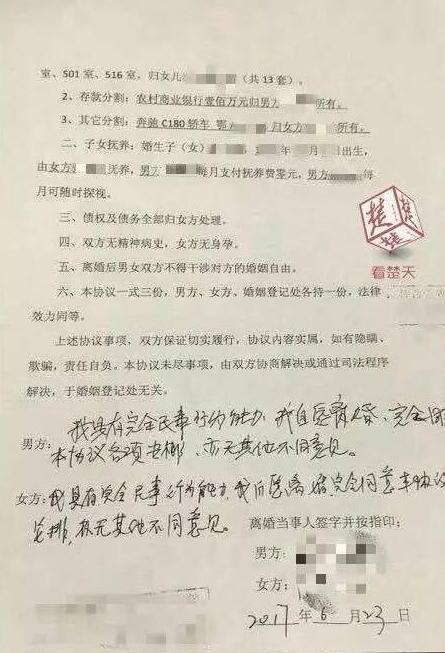 室、501 室、516 室，归女儿（共 13 套）。
2、存款分割：农村商业银行壹佰万元归男方所有。
3、其它分割：奔驰 C180 轿车 鄂归女方所有。
二、子女抚养：婚生子（女）年月日出生，
由女方抚养，男方每月支付抚养费零元，男方每
月可随时探视。
三、债权及债务全部归女方处理。
四、双方无精神病史，女方无身孕。
五、离婚后男女双方不得干涉对方的婚姻自由。
六、本协议一式三份，男方、女方、婚姻登记处各持一份，法律
效力同等。
看楚天
上述协议事项，双方保证切实履行，协议内容实属，如有隐瞒、
欺骗，责任自负。本协议未尽事项，由双方协商解决或通过司法程序
解决，于婚姻登记处无关。
男方：我具有完全民事行为能力，我自愿离婚，完全同
本协议各项安排，亦无其他不同意见。
女方：我具有完全民事行为能力，我自愿离婚，完全同意本协议
安排，亦无其他不同意见。
离婚当事人签字并按指印：
男方：
女方：
2017 年 6 月 23 日